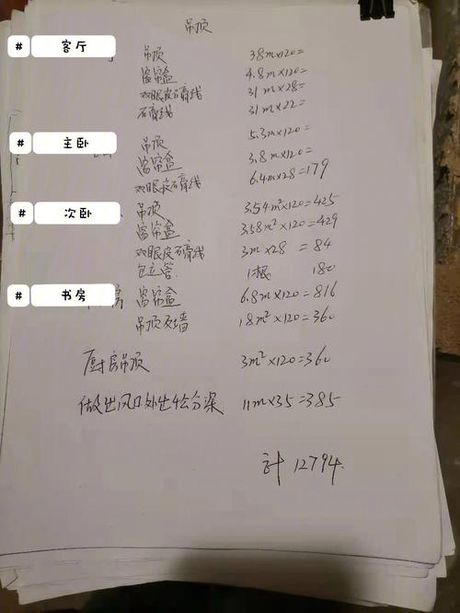 吊顶
# 客厅
吊顶 38m×120=
窗帘盒 4.8m×120=
双眼皮石膏线 31m×28=
石膏线 31m×22=
# 主卧
吊顶 5.3m×120=
窗帘盒 3.8m×120=
双眼皮石膏线 6.4m×28=179
# 次卧
吊顶 3.54m²×120=425
窗帘盒 3.58m²×120=429
双眼皮石膏线 3m×28=84
包立管 1根 180
# 书房
房 窗帘盒 6.8m×120=816
吊顶及墙 18m²×120=360
厨房吊顶 3m²×120=360
做出风口处 11m×35=385
计 12794.